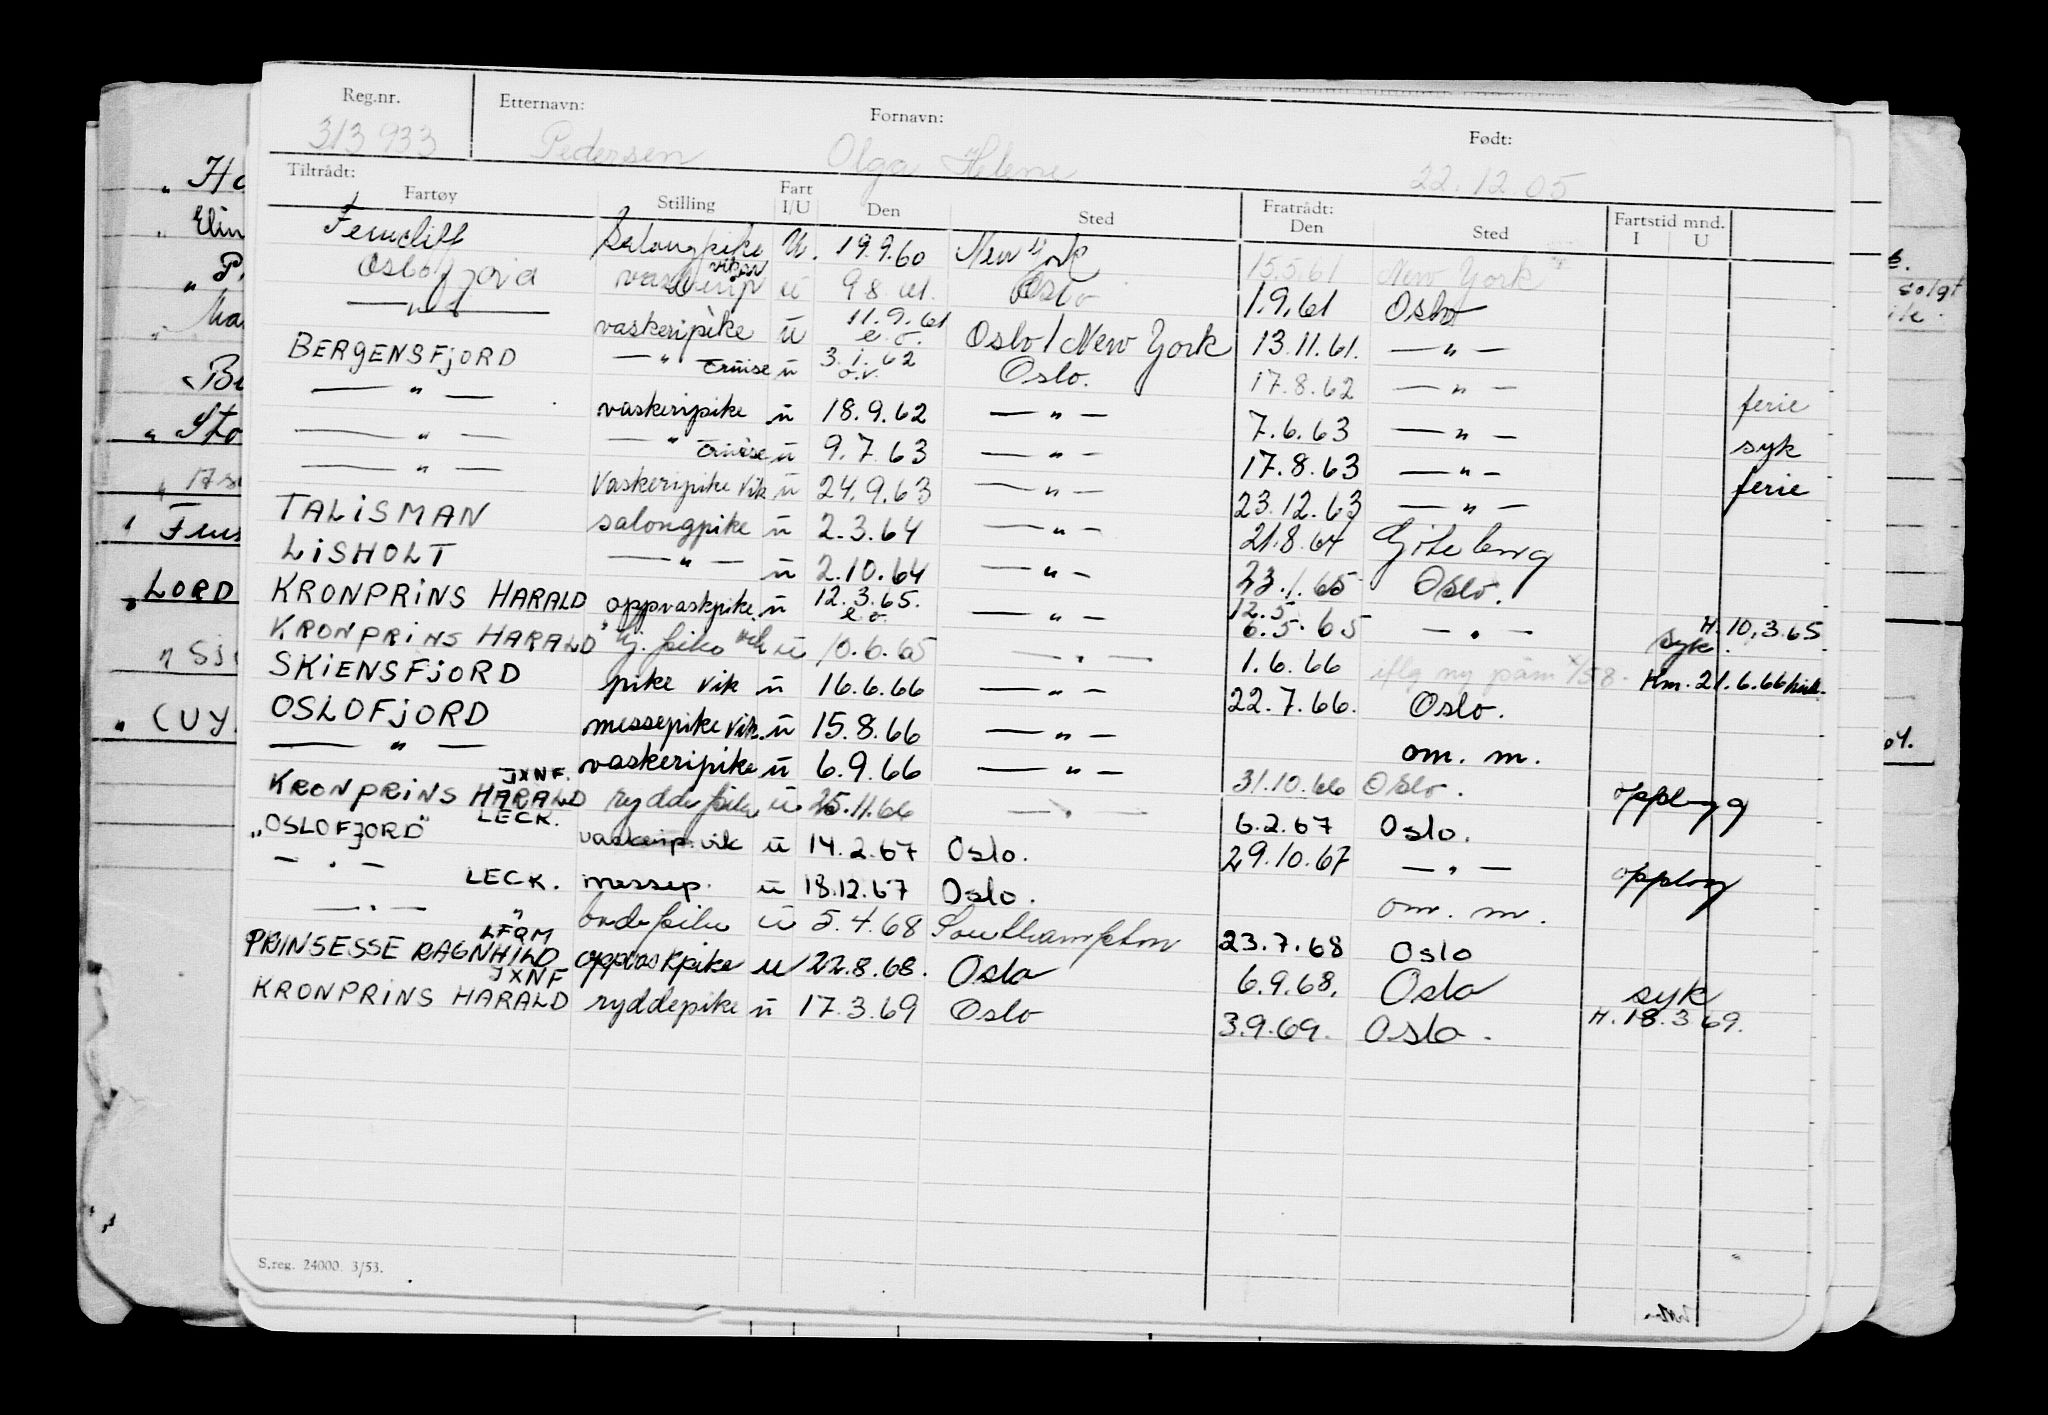 Reg.nr. Etternavn: Fornavn: Født:
313 933 Pedersen Olga Helene 22.12.05
Tiltrådt: Fratrådt: Fartstid mnd.
Fartøy Stilling Fart I/U Den Sted Den Sted I U
Ferncliff Salongpike U. 19.9.60 New York 15.5.61 New York
Oslofjord vaskerip vikar u 9.8.61. Oslo 1.9.61 Oslo
— " — vaskeripike u 11.9.61 e.o. Oslo/New York 13.11.61. — " —
BERGENSFJORD — " cruise u 3.1.62 o.v. Oslo. 17.8.62 — " — ferie
— " — vaskeripike u 18.9.62 — " — 7.6.63 — " — syk
— " — — " cruise u 9.7.63 — " — 17.8.63 — " — ferie
— " — Vaskeripike vik u 24.9.63 — " — 23.12.63 — " —
TALISMAN salongpike u 2.3.64 — " — 21.8.64 Göteborg
LISHOLT — " — u 2.10.64 — " — 23.1.65 Oslo.
KRONPRINS HARALD oppvaskpike u 12.3.65. e o — " — 12.5. 6.5.65 — " — H. 10.3.65
KRONPRINS HARALD pike vik u 10.6.65 — " — 1.6.66 iflg ny påm syk.
SKIENSFJORD pike vik u 16.6.66 — " — 22.7.66. Oslo. Hm. 21.6.66
OSLOFJORD messepike vik. u 15.8.66 — " — om. m.
— " — vaskeripike u 6.9.66 — " — 31.10.66 Oslo. oppbygg
KRONPRINS HARALD JXNF. ryddepike u 25.11.66 — " — 6.2.67 Oslo.
"OSLOFJORD" LECK. vaskerip. vik u 14.2.67 Oslo. 29.10.67 — " — opplag
— " — LECK. messep. u 18.12.67 Oslo. om. m.
— " — " u 5.4.68 Southampton 23.7.68 Oslo
PRINSESSE RAGNHILD LFQM oppvaskpike u 22.8.68. Oslo 6.9.68. Oslo syk
KRONPRINS HARALD JXNF ryddepike u 17.3.69 Oslo 3.9.69. Oslo. H. 18.3.69.
S.reg. 24000. 3/53.
Elin
LORD
solgt